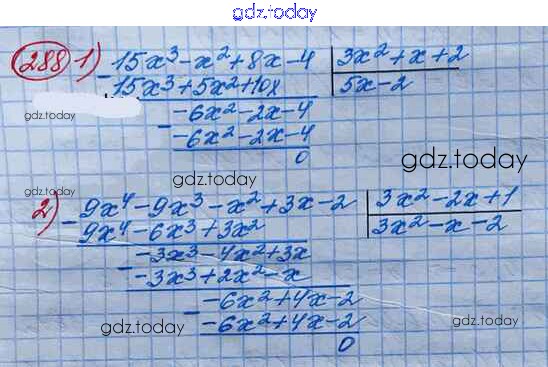 gdz.today
288 1) 15x³ - x² + 8x - 4 | 3x² + x + 2
- 15x³ + 5x² + 10x | 5x - 2
gdz.today
- -6x² - 2x - 4
-6x² - 2x - 4
0
gdz.today
gdz.today
gdz.today
2) - 9x⁴ - 9x³ - x² + 3x - 2 | 3x² - 2x + 1
9x⁴ - 6x³ + 3x² | 3x² - x - 2
- -3x³ - 4x² + 3x
-3x³ + 2x² - x
- -6x² + 4x - 2
-6x² + 4x - 2
0
gdz.today
gdz.today